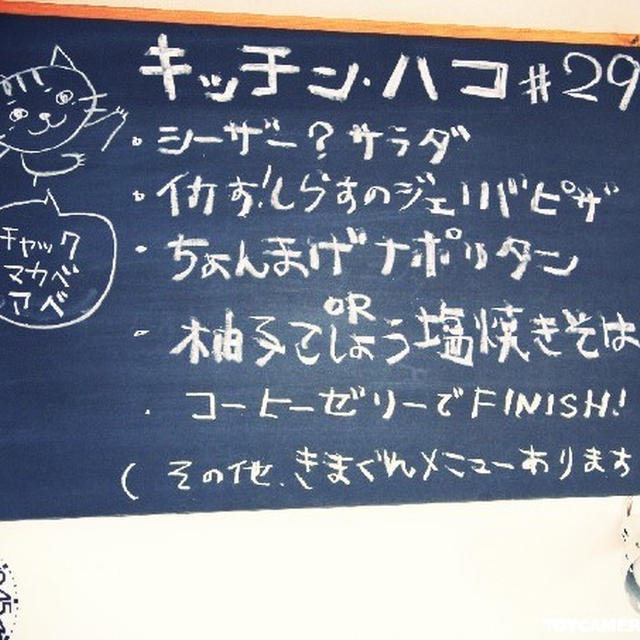 キッチン・ハコ #29
・シーザー?サラダ
・イカす!しらすのジェリバピザ
・ちょんまげナポリタン
OR
・柚子こしょう塩焼きそば
・コーヒーゼリーでFINISH!
(その他、きまぐれメニューあります
チャック
マカベ
アベ
TOYCAMER